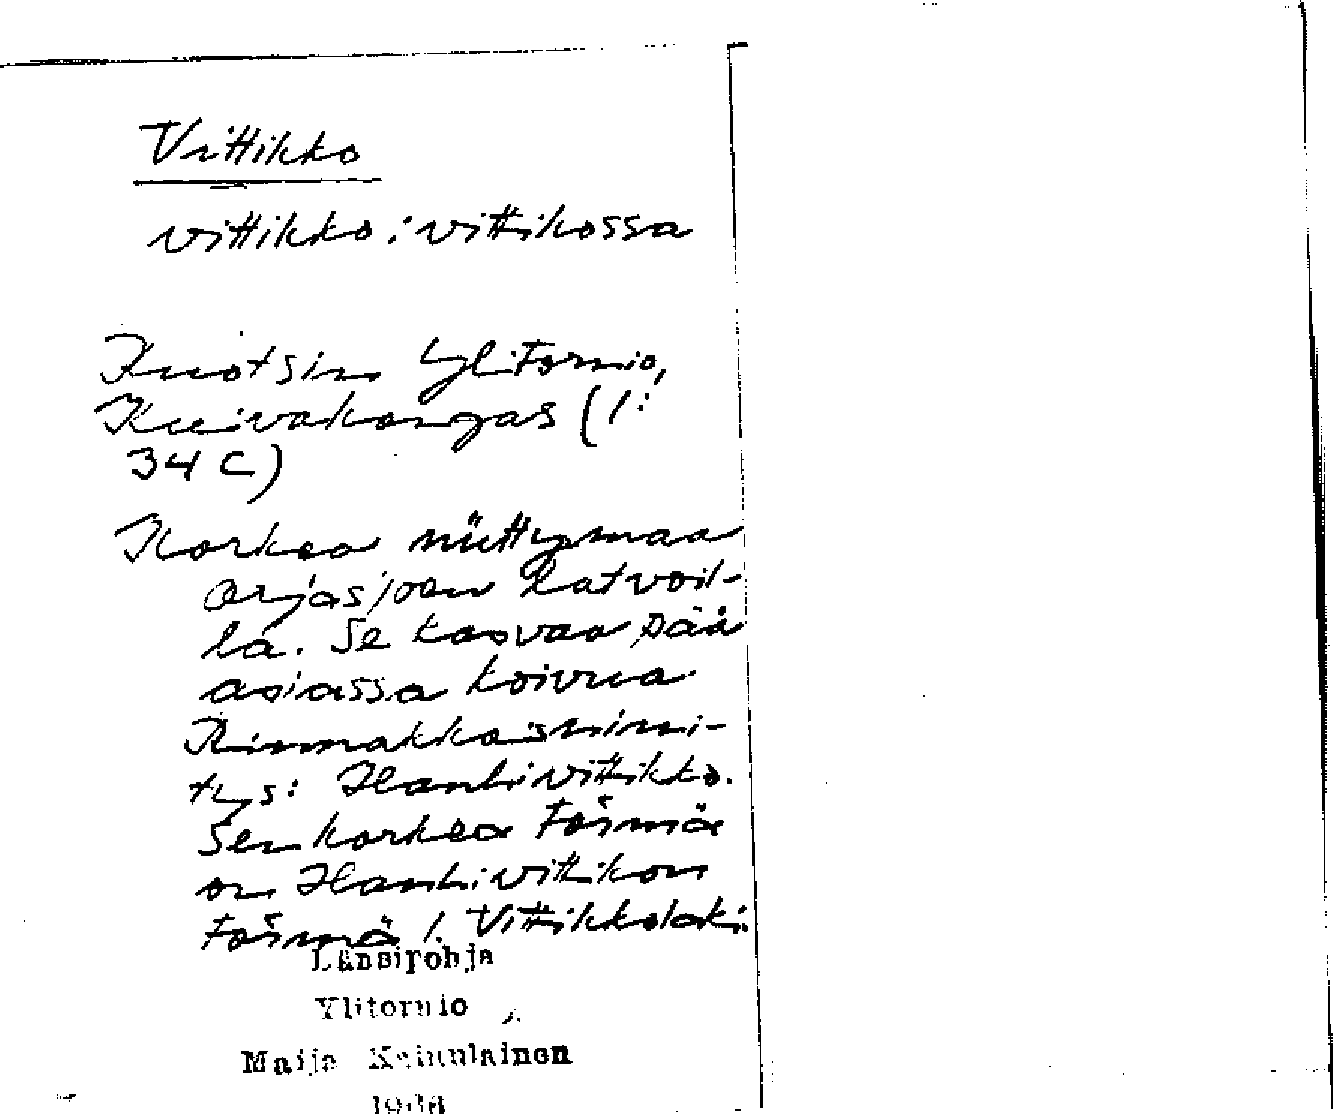 Vittikko
vittikko : vittikossa
Ruotsin Ylitornio,
Kuivakangas (1:
34 C)
Korkea niittymaa
Orjasjoen latvoil-
la. Se kasvaa pää
asiassa koivua.
Rinnakkaisnimi-
tys: Hanhivittikko.
Sen korkea törmä
on Hanhivittikon
törmä l. Vittikkolaki.
Länsipohja
Ylitornio
Maija